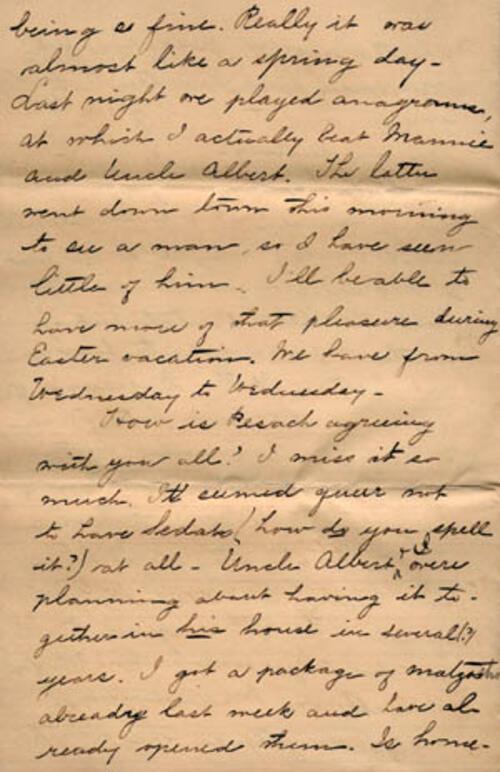 being so fine. Really it was
almost like a spring day -
Last night we played anagrams,
at which I actually beat Mannie
and Uncle Albert. The latter
went down town this morning
to see a man, so I have seen
little of him. I'll be able to
have more of that pleasure during
Easter vacation. We have from
Wednesday to Wednesday -
How is Pesach agreeing
with you all? I miss it so
much. It seemed queer not
to have Sedats (how do you spell
it?) at all - Uncle Albert & I were
planning about having it to-
gether in his house in several (?)
years. I got a package of matzoths
already last week and have al-
ready opened them. Is home-